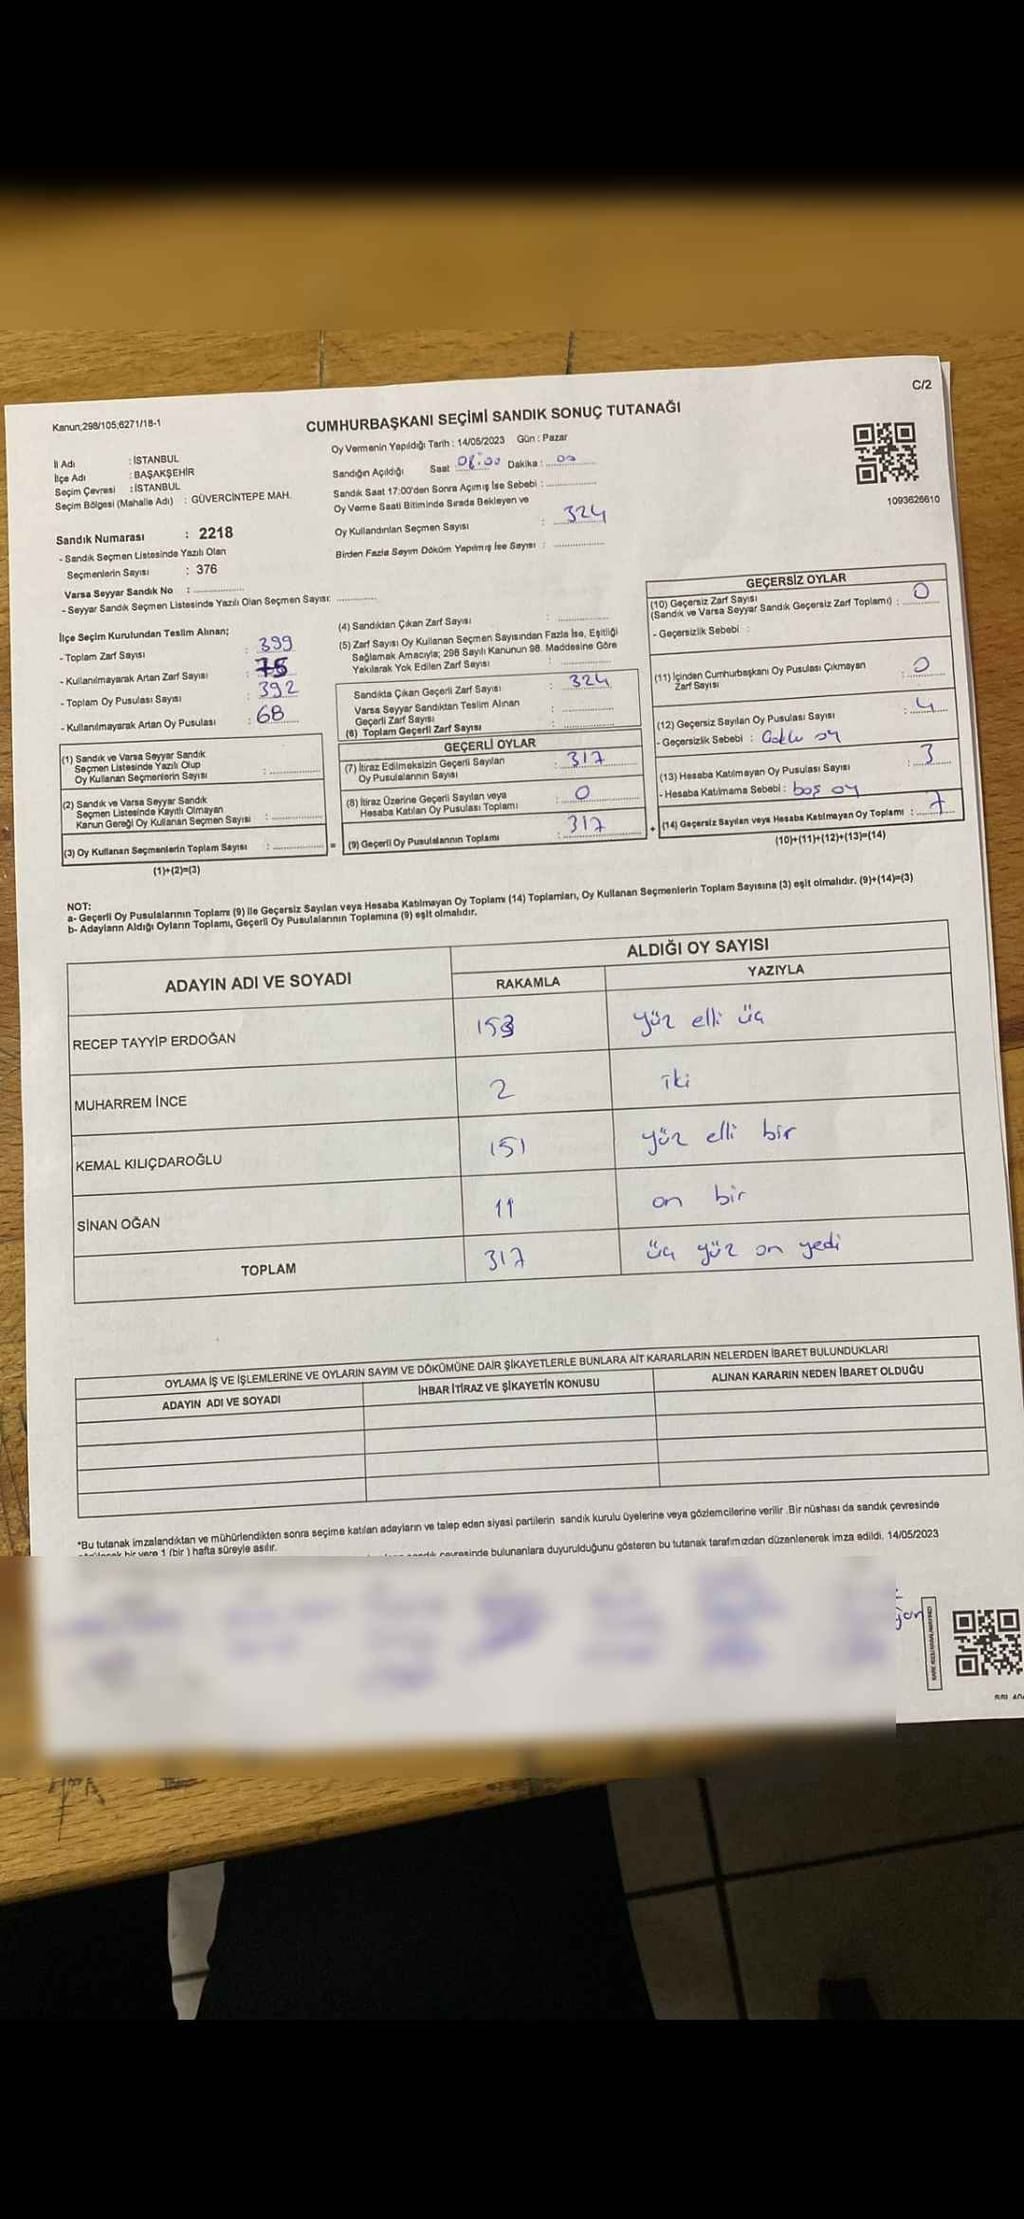 C/2
Kanun;298/105;6271/18-1
CUMHURBAŞKANI SEÇİMİ SANDIK SONUÇ TUTANAĞI
Oy Vermenin Yapıldığı Tarih : 14/05/2023 Gün : Pazar
İl Adı : İSTANBUL
İlçe Adı : BAŞAKŞEHİR
Seçim Çevresi : İSTANBUL
Seçim Bölgesi (Mahalle Adı) : GÜVERCİNTEPE MAH.
Sandığın Açıldığı Saat 08:00 Dakika : 00
Sandık Saat 17:00'den Sonra Açımış İse Sebebi :
Oy Verme Saati Bitiminde Sırada Bekleyen ve
Oy Kullandırılan Seçmen Sayısı : 324
Birden Fazla Sayım Döküm Yapılmış İse Sayısı :
1093626610
Sandık Numarası : 2218
- Sandık Seçmen Listesinde Yazılı Olan
Seçmenlerin Sayısı : 376
Varsa Seyyar Sandık No :
- Seyyar Sandık Seçmen Listesinde Yazılı Olan Seçmen Sayısı:
İlçe Seçim Kurulundan Teslim Alınan;
- Toplam Zarf Sayısı : 399
- Kullanılmayarak Artan Zarf Sayısı : 75
- Toplam Oy Pusulası Sayısı : 392
- Kullanılmayarak Artan Oy Pusulası : 68
(1) Sandık ve Varsa Seyyar Sandık
Seçmen Listesinde Yazılı Olup
Oy Kullanan Seçmenlerin Sayısı :
(2) Sandık ve Varsa Seyyar Sandık
Seçmen Listesinde Kayıtlı Olmayan
Kanun Gereği Oy Kullanan Seçmen Sayısı :
(3) Oy Kullanan Seçmenlerin Toplam Sayısı : =
(1)+(2)=(3)
(4) Sandıktan Çıkan Zarf Sayısı :
(5) Zarf Sayısı Oy Kullanan Seçmen Sayısından Fazla İse, Eşitliği
Sağlamak Amacıyla; 298 Sayılı Kanunun 98. Maddesine Göre
Yakılarak Yok Edilen Zarf Sayısı :
Sandıkta Çıkan Geçerli Zarf Sayısı : 324
Varsa Seyyar Sandıktan Teslim Alınan
Geçerli Zarf Sayısı :
(6) Toplam Geçerli Zarf Sayısı :
GEÇERLİ OYLAR
(7) İtiraz Edilmeksizin Geçerli Sayılan
Oy Pusulalarının Sayısı : 317
(8) İtiraz Üzerine Geçerli Sayılan veya
Hesaba Katılan Oy Pusulası Toplamı : 0
(9) Geçerli Oy Pusulalarının Toplamı : 317 +
GEÇERSİZ OYLAR
(10) Geçersiz Zarf Sayısı
(Sandık ve Varsa Seyyar Sandık Geçersiz Zarf Toplamı) : 0
- Geçersizlik Sebebi :
(11) İçinden Cumhurbaşkanı Oy Pusulası Çıkmayan
Zarf Sayısı : 0
(12) Geçersiz Sayılan Oy Pusulası Sayısı : 4
- Geçersizlik Sebebi : Çoklu oy
(13) Hesaba Katılmayan Oy Pusulası Sayısı : 3
- Hesaba Katılmama Sebebi : boş oy
(14) Geçersiz Sayılan veya Hesaba Katılmayan Oy Toplamı : 7
(10)+(11)+(12)+(13)=(14)
NOT:
a- Geçerli Oy Pusulalarının Toplamı (9) ile Geçersiz Sayılan veya Hesaba Katılmayan Oy Toplamı (14) Toplamları, Oy Kullanan Seçmenlerin Toplam Sayısına (3) eşit olmalıdır. (9)+(14)=(3)
b- Adayların Aldığı Oyların Toplamı, Geçerli Oy Pusulalarının Toplamına (9) eşit olmalıdır.
ADAYIN ADI VE SOYADI
ALDIĞI OY SAYISI
RAKAMLA YAZIYLA
RECEP TAYYİP ERDOĞAN 153 yüz elli üç
MUHARREM İNCE 2 iki
KEMAL KILIÇDAROĞLU 151 yüz elli bir
SİNAN OĞAN 11 on bir
TOPLAM 317 üç yüz on yedi
OYLAMA İŞ VE İŞLEMLERİNE VE OYLARIN SAYIM VE DÖKÜMÜNE DAİR ŞİKAYETLERLE BUNLARA AİT KARARLARIN NELERDEN İBARET BULUNDUKLARI
ADAYIN ADI VE SOYADI İHBAR İTİRAZ VE ŞİKAYETİN KONUSU ALINAN KARARIN NEDEN İBARET OLDUĞU
*Bu tutanak imzalandıktan ve mühürlendikten sonra seçime katılan adayların ve talep eden siyasi partilerin sandık kurulu üyelerine veya gözlemcilerine verilir .Bir nüshası da sandık çevresinde
bir yere 1 (bir ) hafta süreyle asılır.
çevresinde bulunanlara duyurulduğunu gösteren bu tutanak tarafımızdan düzenlenerek imza edildi. 14/05/2023